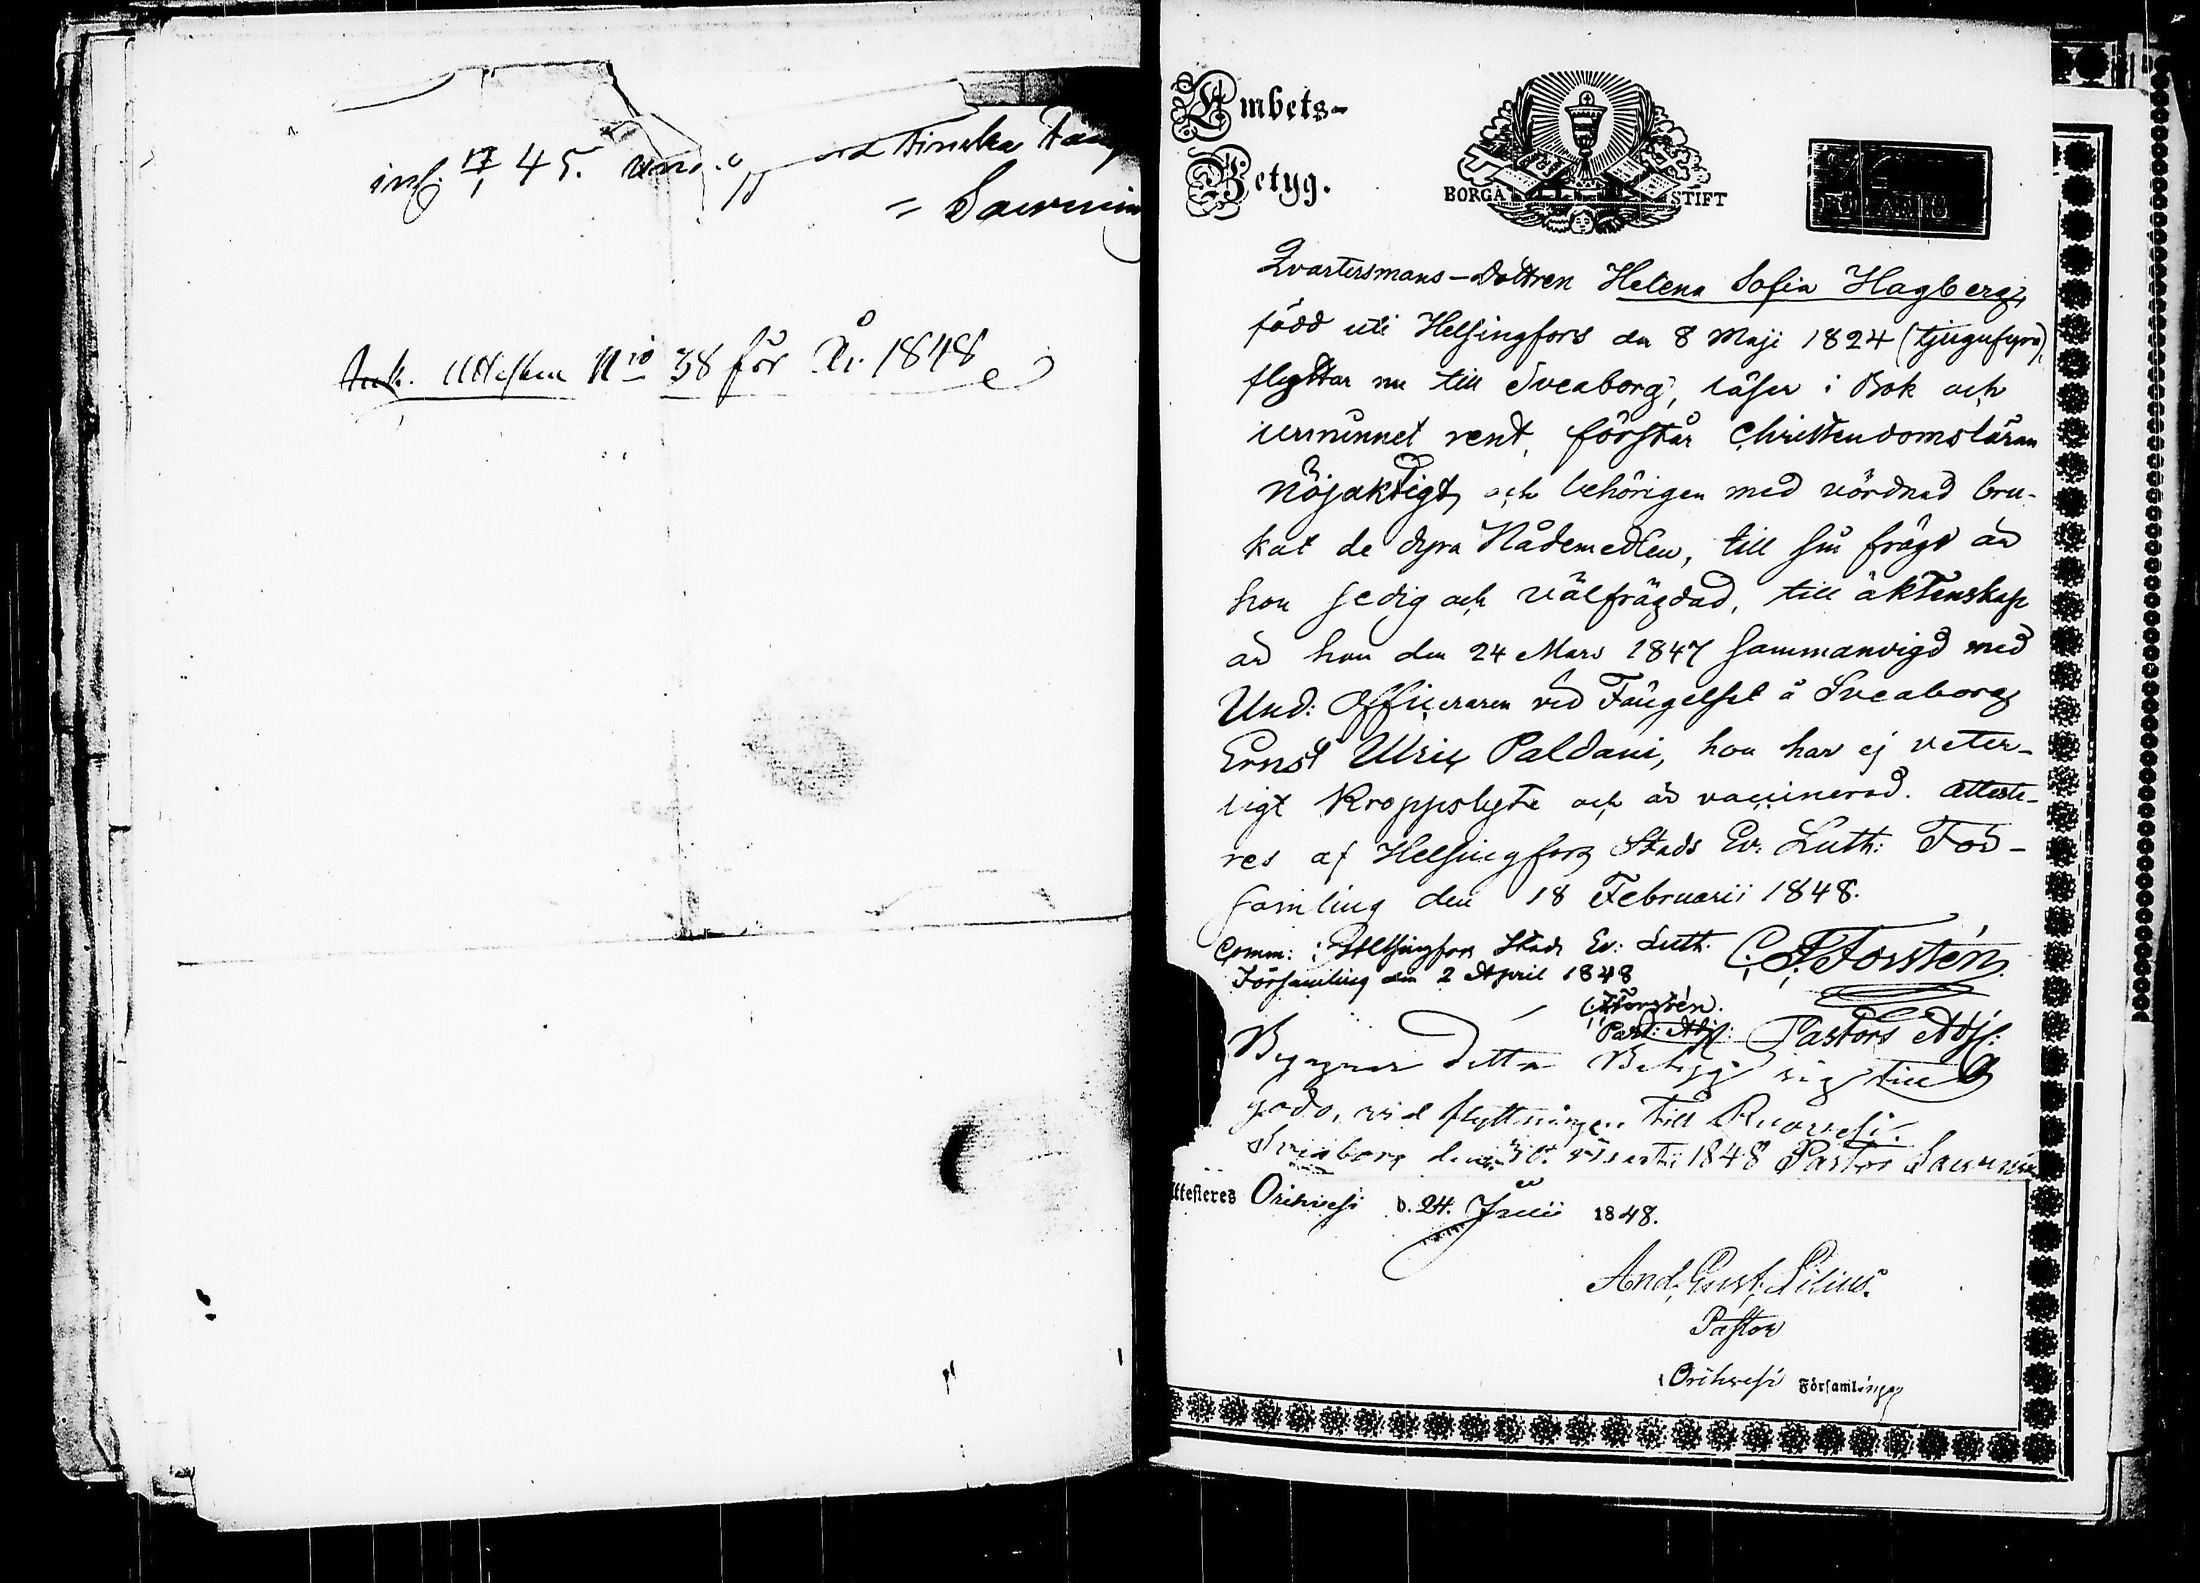 inf. 17/1 45.
Finska
Ank. Attesten N:io 38 för År 1848
Embets-
Betyg.
BORGÅ STIFT
Qvartersmans-Dottren Helena Sofia Hagberg,
född uti Helsingfors den 8 Maji 1824 (tjugufyra),
flyttar nu till Sveaborg, läser i Bok och
urminnet rent, förstår Christendomsläran
nöjaktigt, och behörigen med vördnad bru-
kat de dyra Nådemedlen, till sin frägd är
hon sedig och välfrägdad, till äktenskap
är hon den 24 Mars 1847 sammanvigd med
Und: Officeraren vid Fängelset å Sveaborg
Ernst Ulric Paldani, hon har ej veter-
ligt Kroppslyte och är vaccinerad. Atteste-
res af Helsingfors Stads Ev: Luth: För-
samling den 18 Februarii 1848.
C. F. Forstén.
Pastors Adj:
Comm: i Helsingfors Stads Ev: Luth.
Församling den 2 April 1848
C. F. Forstén.
Past: Adj:
Begagnar detta Betyg sig till
godo, vid flyttningen till Ruovesi.
Sveaborg den 30. 1848 Pastor
Attesteres Orihvesi d. 24. Julii 1848.
And. Gust. Lilius.
Pastor
i Orihvesi Församlingen